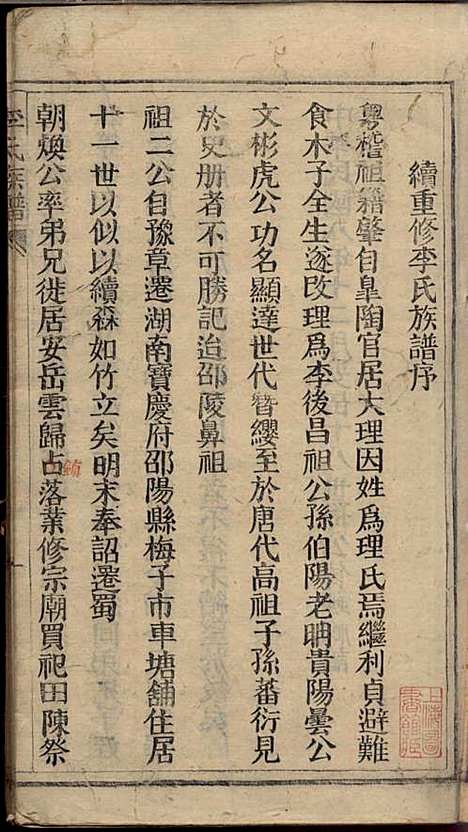 續重修李氏族譜序
粵稽祖籍肇自臯陶官居大理因姓爲理氏焉繼利貞避難
食木子全生遂改理爲李後昌祖公孫伯陽老耼貴陽曇公
文彬虎公功名顯達世代簪纓至於唐代高祖子孫蕃衍見
於史册者不可勝記迨邵陵鼻祖
祖二公自豫章遷湖南寶慶府邵陽縣梅子市車塘舖住居
十一世以似以續森如竹立矣明末奉詔遷蜀
朝煥公率弟兄徙居安岳雲歸占落業修宗廟買祀田陳祭
鎮
李氏族譜
上海圖
書館藏